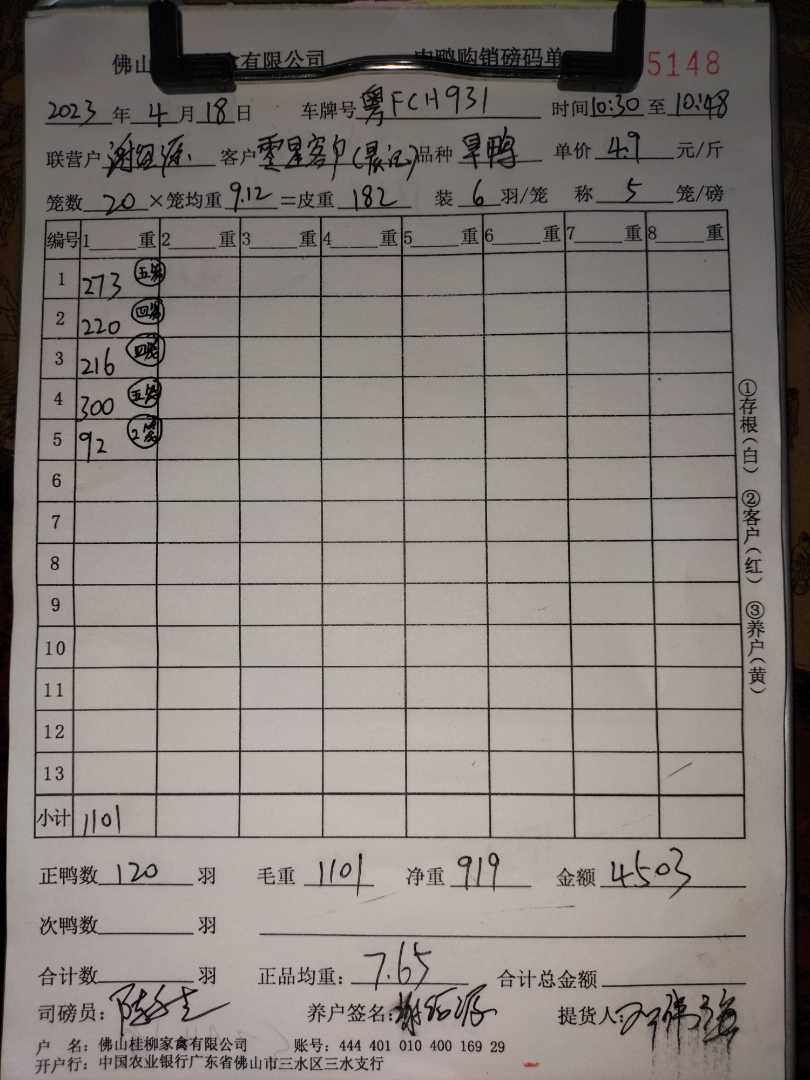 佛山 家禽有限公司 鸭购销磅码单 5148
2023年4月18日 车牌号粤FCH931 时间10:30至10:48
联营户 客户零星客户( ) 品种旱鸭 单价4.9元/斤
笼数20×笼均重9.12=皮重182 装6羽/笼 称5笼/磅
编号 1 重 2 重 3 重 4 重 5 重 6 重 7 重 8 重
1 273 五笼
2 220 四笼
3 216 四笼
4 300 五笼
5 92 2笼
6
7
8
9
10
11
12
13
小计 1101
①存根(白) ②客户(红) ③养户(黄)
正鸭数120羽 毛重1101 净重919 金额4503
次鸭数 羽
合计数 羽 正品均重:7.65 合计总金额
司磅员: 养户签名: 提货人:
户 名:佛山桂柳家禽有限公司 账号:444 401 010 400 169 29
开户行:中国农业银行广东省佛山市三水区三水支行